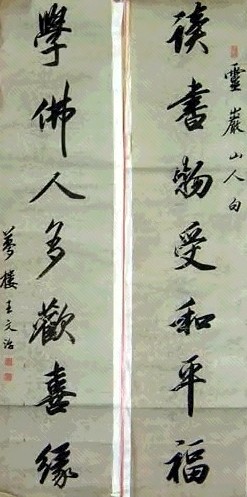 靈巖山人句
讀書物受和平福
學佛人多歡喜緣
夢樓王文治